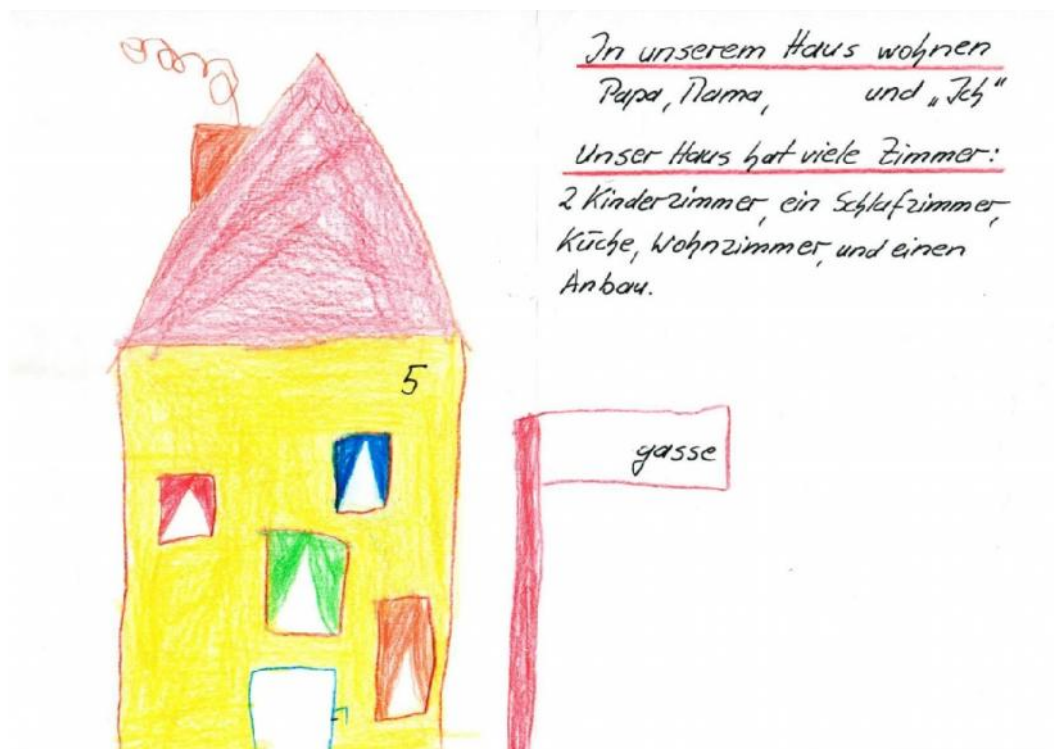 In unserem Haus wohnen
Papa, Mama, und „Ich“
Unser Haus hat viele Zimmer:
2 Kinderzimmer, ein Schlafzimmer,
Küche, Wohnzimmer, und einen
Anbau.
5
gasse